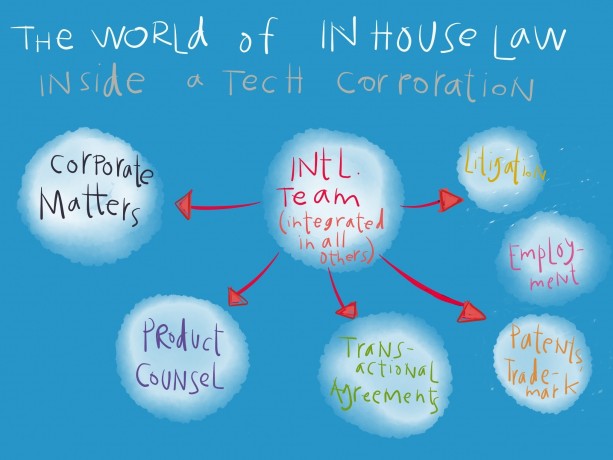 THE WORLD of IN HOUSE LAW
INSIDE a TECH CORPORATION
Corporate
Matters
INTL.
Team
(integrated
in all
others)
Litigation
Employ-
ment
PRODUCT
COUNSEL
Trans-
actional
Agreements
Patents
Trade-
mark